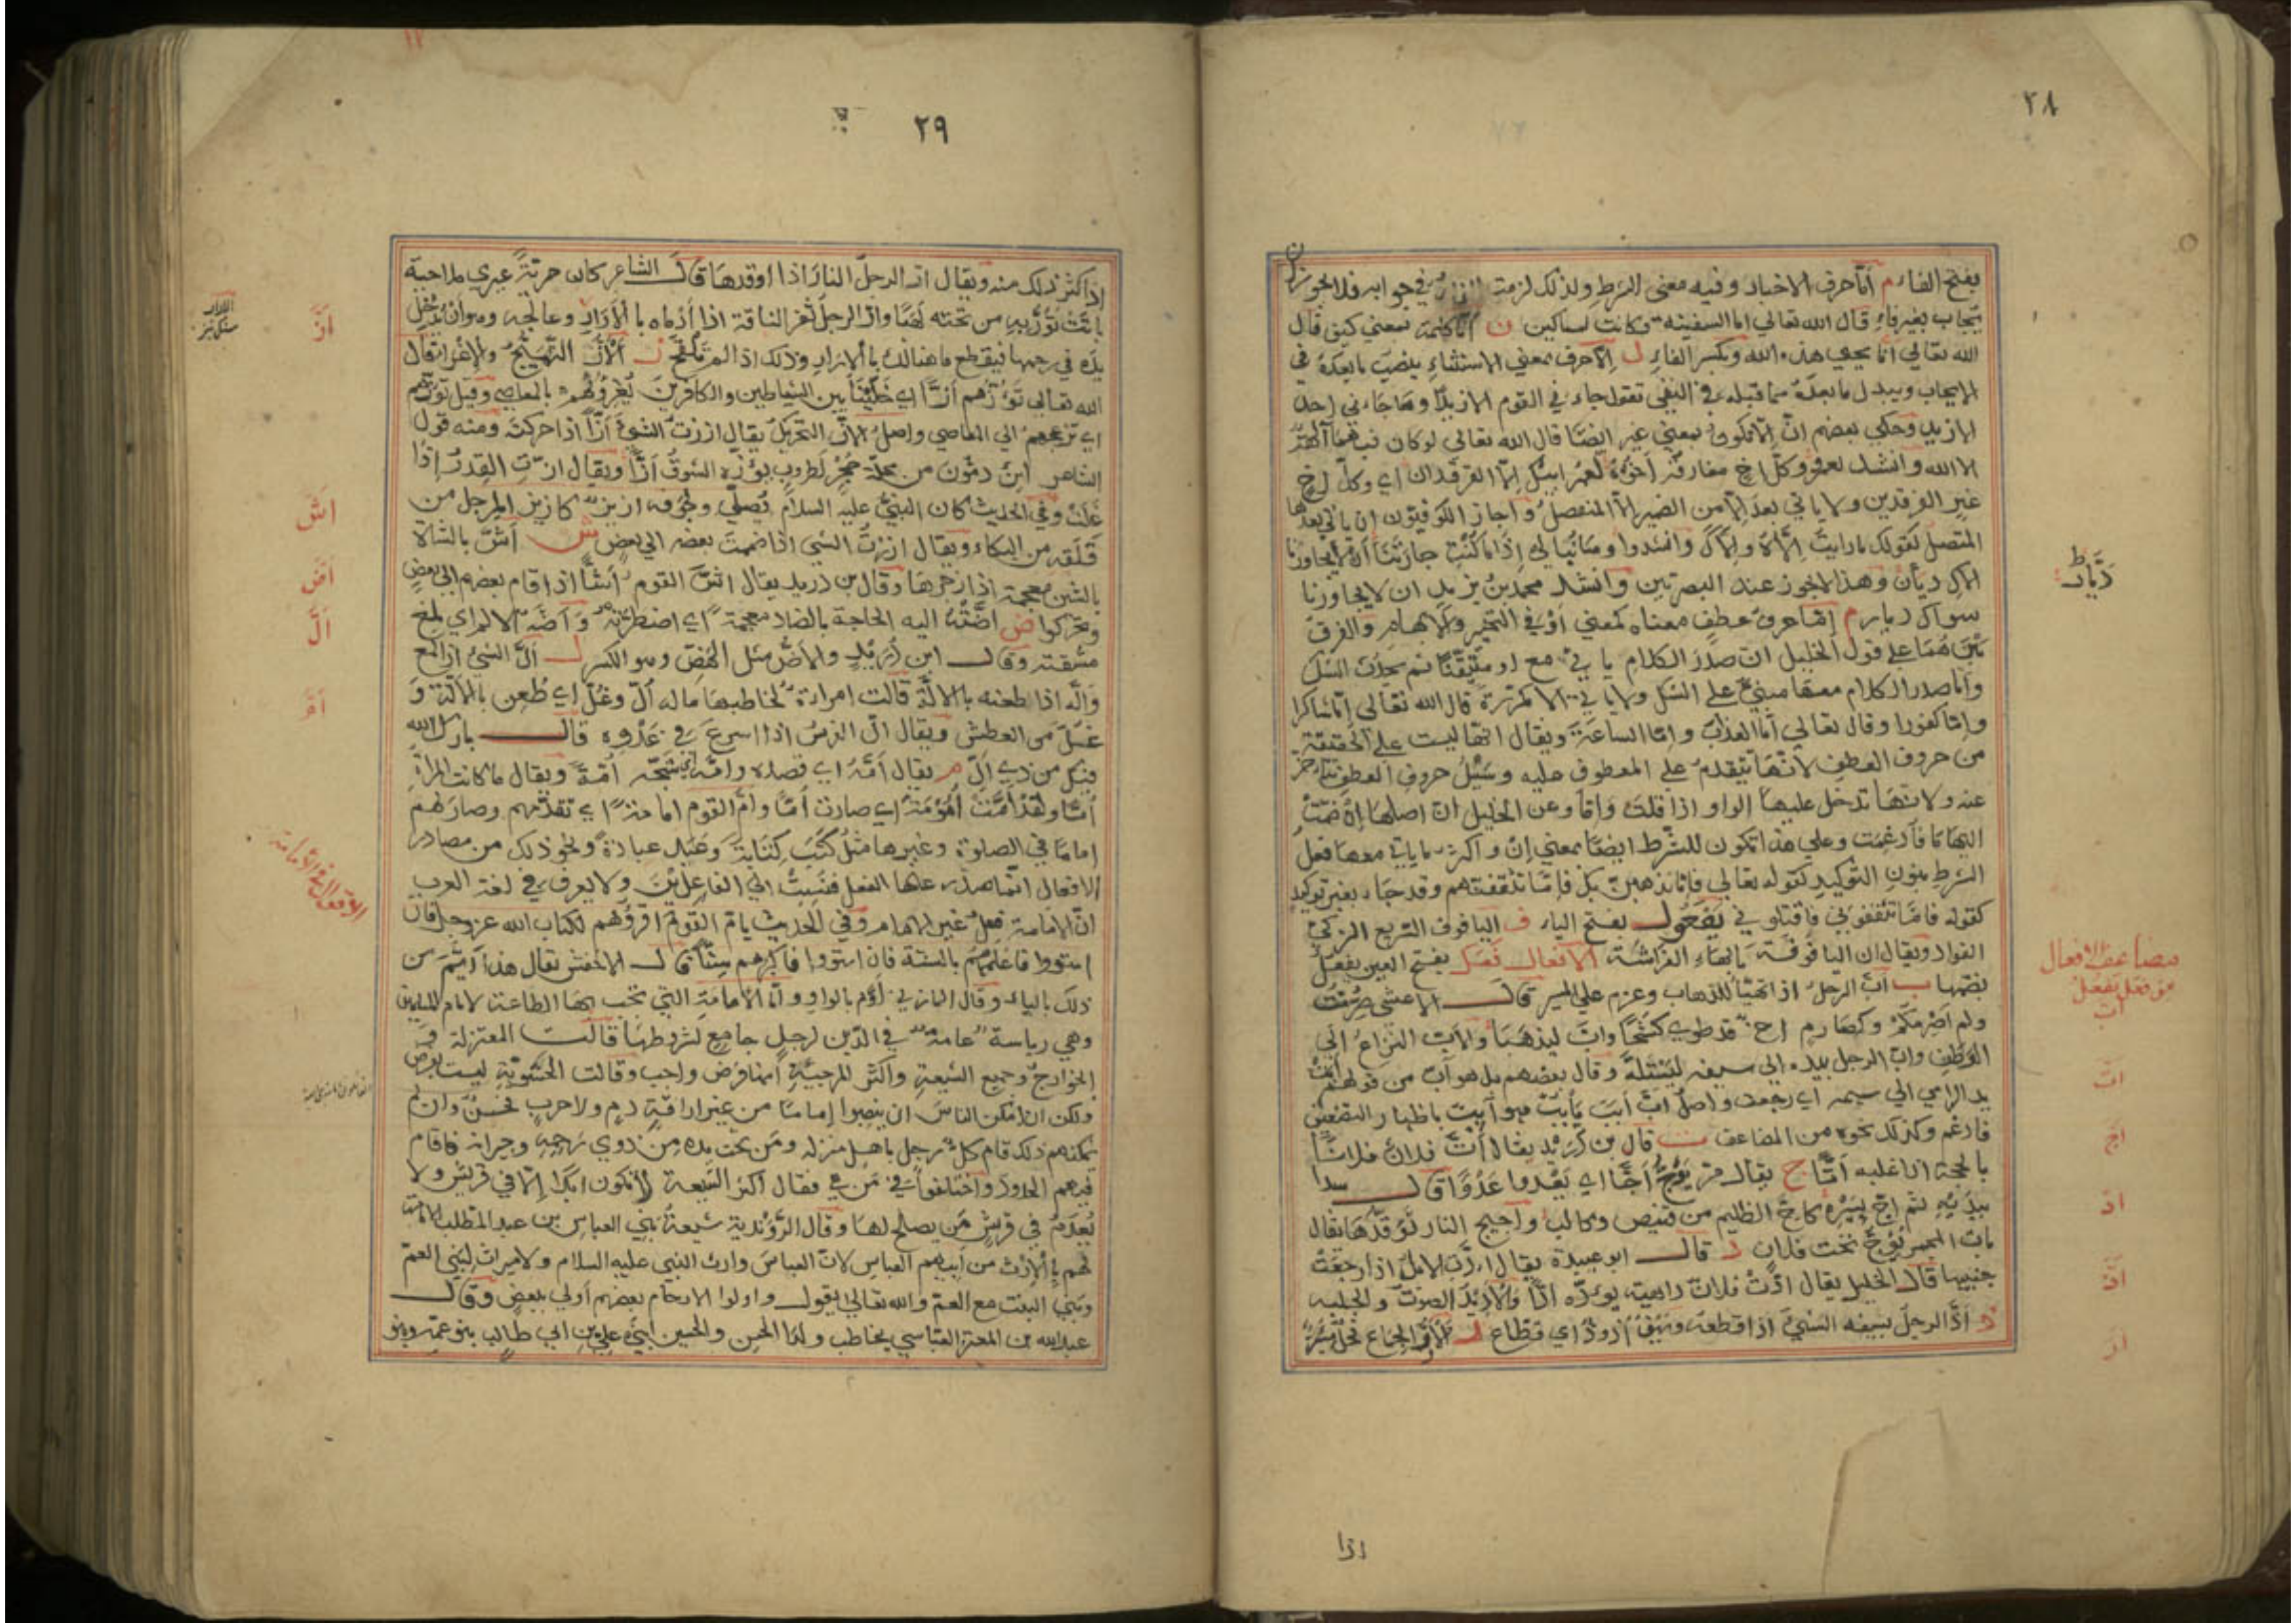 ٢٨
بفتح الفاء م أمّا حرف الاخبار وفيه معنى الشرط ولذلك لزمت الفاء في جوابه فلا يجوز ان
يجاب بغير فاءٍ قال الله تعالى اما السفينة فكانت لمساكين ن أنّا كلمة بمعنى كيف قال
الله تعالى أنّا يحيى هذه الله وبكسر الفاءِ ل إلّا حرف بمعنى الاستثناءِ ينصب ما بعدهُ في
الايجاب ويبدل ما بعدهُ مما قبله في النفي تقول جاء في القوم الا زيدًا وما جاءني احدٌ
الا زيد وحكى بعضهم انّ إلّا تكون بمعنى غير ايضًا قال الله تعالى لو كان فيهما آلهة
الا الله وانشد لعمرو وكلّ اخٍ مفارقه أخوهُ لعمر ابيك إلّا الفرقدان اي وكلّ اخٍ
غير الفرقدين ولا ياتي بعد إلّا من الضمير الّا المنفصل وأجاز الكوفيّون ان ياتي بعدها
المتصل كقولك ما رايت إلّاهُ وإلّاكَ وانشدوا وما نُبالي إذا ما كنتِ جارتنا أن لا يجاورنا
الاكِ ديار وهذا لا يجوز عند البصريين وانشد محمد بن يزيد ان لا يجاورنا
سواكِ ديار م إمّا حرف عطفٍ معناه كمعنى أوْ في التخيير والابهام والفرق
بينهما على قول الخليل انّ صدر الكلام ياتي مع او متيقّنًا ثم يحدث الشك
وأمّا صدر الكلام معها مبنيّ على الشك ولا ياتي الا مكررة قال الله تعالى إمّا شاكرا
وإمّا كفورا وقال تعالى إمّا العذاب وإمّا الساعة ويقال انها ليست على الحقيقة
من حروف العطف لانّها تتقدم على المعطوف عليه وسبيلُ حروف العطف تتاخّر
عنه ولانها تدخل عليها الواو اذا قلت وإمّا وعن الخليل انّ اصلها إنْ ضمّت
اليها ما فأدغمت وعلى هذا تكون للشرط ايضًا بمعنى إنْ واكثر ما ياتي معها فعل
الشرط بنون التوكيد كقوله تعالى فإمّا نذهبنّ بك فإمّا تثقفنّهم وقد جاء بغير توكيد
كقوله فامّا تثقفوني فاقتلوني يَفعُول بفتح الياء ف اليافوف السريع الزكي
الفواد ويقال ان اليافوفة بالهاءِ الفراشة الافعال فَعَل بفتح العين يفعُل
بضمّها ب أبّ الرجلُ اذا تهيّأ للذهاب وعزم على المسير قال الاعشى صَرَمتُ
ولم اصرمكم وكصارمٍ اخ قد طوى كشحًا وابّ ليذهبا والأبّ النزاع الى
الوطن وابّ الرجل بيده الى سيفه ليستلّه وقال بعضهم بل هو آب من قولهم آبت
يد الرامي الى سهمه اي رجعت واصل ابّ أبَبَ يأبُبُ فهو آبب باظهار التضعيف
فادغم وكذلك نحوه من المضاعف ت قال بن دُرَيد يقال أتّ فلانٌ فلانًا
بالحجة اذا غلبه أتًّا ج يقال مرّ يَؤُجُّ أجًّا اي يَعْدوا عَدْوًا قال سدا
بيديه ثم اجّ بسيره كاجّ الظليم من قنيص وكالب واجيج النار توقّدها يقال
بات الجمر يؤجّ تحت فلان د قال ابو عبيدة يقال أدّت الابل اذا رجّعت
حنينها قال الخليل يقال ادّت فلانًا داهية يودّه ادًّا والأديد الصوت والجلبة
ذ أذّ الرجلُ بسيفه الشيء اذا قطعه وسيفٌ أذوذٌ اي قطاع ر الأرّ الجماع فحلٌ مئرّ
اذا
ديّار
مضاعف الافعال
من فعَل يفعُل
ابّ
اتّ
اجّ
ادّ
اذّ
ارّ
٢٩
اذا كثر ذلك منه ويقال ارّ الرجلُ النار اذا اوقدها قال الشاعر كان حيريّةً غيرى ملاحية
باتت تؤرّ به من تحته لهبًا وارّ الرجل ثفر الناقة اذا أدماه بالأرار وعالجه وهو ان يدخل
يده في رحمها فيقطع ما هنالك بالارار وذلك اذا لم تلقح ز الأزّ التهييج والإغراء قال
الله تعالى تؤزّهم ازًّا اي خلّينا بين الشياطين والكافرين يُغرونهم بالمعاصي وقيل تؤزّهم
اي تزعجهم الى المعاصي واصل الازّ التحريك يقال اززت الشيءَ أزًّا اذا حركته ومنه قول
الشاعر ابن دمّون من محلة حُجْر لطروب يؤزّه الشوق أزًّا ويقال ازّت القدر اذا
غلت وفي الحديث كان النبيّ عليه السلام يُصلّي وجَوفه ازيزٌ كازيز المرجل من
قلقه من البكاء ويقال ازرتُ الشي اذا ضممت بعضه الى بعض ش أشّ بالشاة
بالشين معجمة اذا زجرها وقال بن دريد يقال اشّ القوم أشًّا اذا قام بعضهم الى بعضٍ
وتحركوا ض أضّتهُ اليه الحاجة بالضاد معجمةً اي اضطرته وأضّه الامر اي بلغ
مشقته وقال ابن دُرَيدٍ والأضّ مثل الهضّ وهو الكسر ل ألّ الشيُ اذا لمع
وألّه اذا طعنه بالالّة قالت امراة تخاطبها ما له ألّ وغُلّ اي طُعن بالألّة و
غُلّ من العطش ويقال الّ الفرسُ اذا اسرع في عَدْوِه قال بارك الله
فيكَ من ذي ألّ م يقال أمّه اي قصده وامّه اي شجّه أمّةً ويقال ما كانت المراة
أمًّا ولقد أمَّت أُمُومةً اي صارت أمًّا وامّ القوم اماما اي تقدّمهم وصار لهم
إمامًا في الصلوة وغيرها مثل كَتَب كتابة وعَبَد عبادةً ونحو ذلك من مصادر
الافعال انما صدر عنها الفعل فنُسِبَ الى الفاعلين ولا يعرف في لغة العرب
انّ الامامة فعلُ غير الامام وفي الحديث يامّ القومَ اقرؤهم لكتاب الله عز وجل فان
استووا فاعلمهم بالسنة فان استووا فاكبرهم سنًّا قال الاخفش يقال هذا أيمّ من
ذلك بالياء وقال المازني أومّ بالواو وأمّا الامامة التي تجب بها الطاعة لامام المسلمين
وهي رياسة عامة في الدّين لرجلٍ جامعٍ لشروطها قالت المعتزلة و
الخوارج وجميع الشيعة واكثر المرجيّة انها فرض واجب وقالت الحشويّة ليست بفرض
ولكن ان امكن الناس ان ينصبوا إمامًا من غير اراقة دمٍ ولا حربٍ فحسنٌ وان لم
يمكنهم ذلك قام كلّ رجلٍ باهل منزله ومَن تحت يده من ذوي رحمٍ وجيرانه فاقام
فيهم الحدود واختلفوا في مَن هي فقال اكثر الشيعة لا تكون ابدًا إلّا في قريش ولا
يُعدَم في قريش مَن يصلح لها وقال الرّوندية شيعةُ بني العباس بن عبد المطلب
لهم بالإرث من أبيهم العباس لانّ العباس وارث النبي عليه السلام ولا ميراث لبني العمّ
وبني البنت مع العمّ والله تعالى يقول واولوا الارحام بعضهم أولى ببعضٍ وقال
عبد الله بن المعتز العبّاسي يخاطب ولد الحسن والحسين ابني علي بن ابي طالب بنو عمه وبنو
ازّ
اشّ
اضّ
الّ
امّ